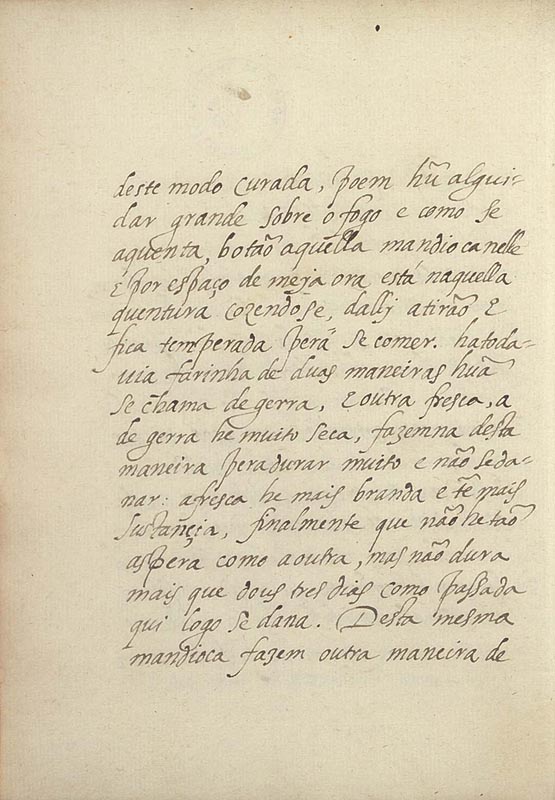 deste modo curada, poem hũ algui-
dar grande sobre o fogo e como se
aquenta, botaõ aquella mandioca nelle
E por espaço de meja ora esta naquella
quentura cozendose, dallj atiraõ, E
fica temperada perâ se comer. ha toda-
uia farinha de duas maneiras huã
se chama de gerra, E outra fresca, a
de gerra he muito seca, fazemna desta
maneira pera durar muito e naõ se da-
nar: a fresca he mais branda e tẽ mais
sustançia, finalmente que naõ he taõ
aspera como a outra, mas naõ dura
mais que dous tres dias como passada
qui logo se dana. Desta mesma
mandioca fazem outra maneira de